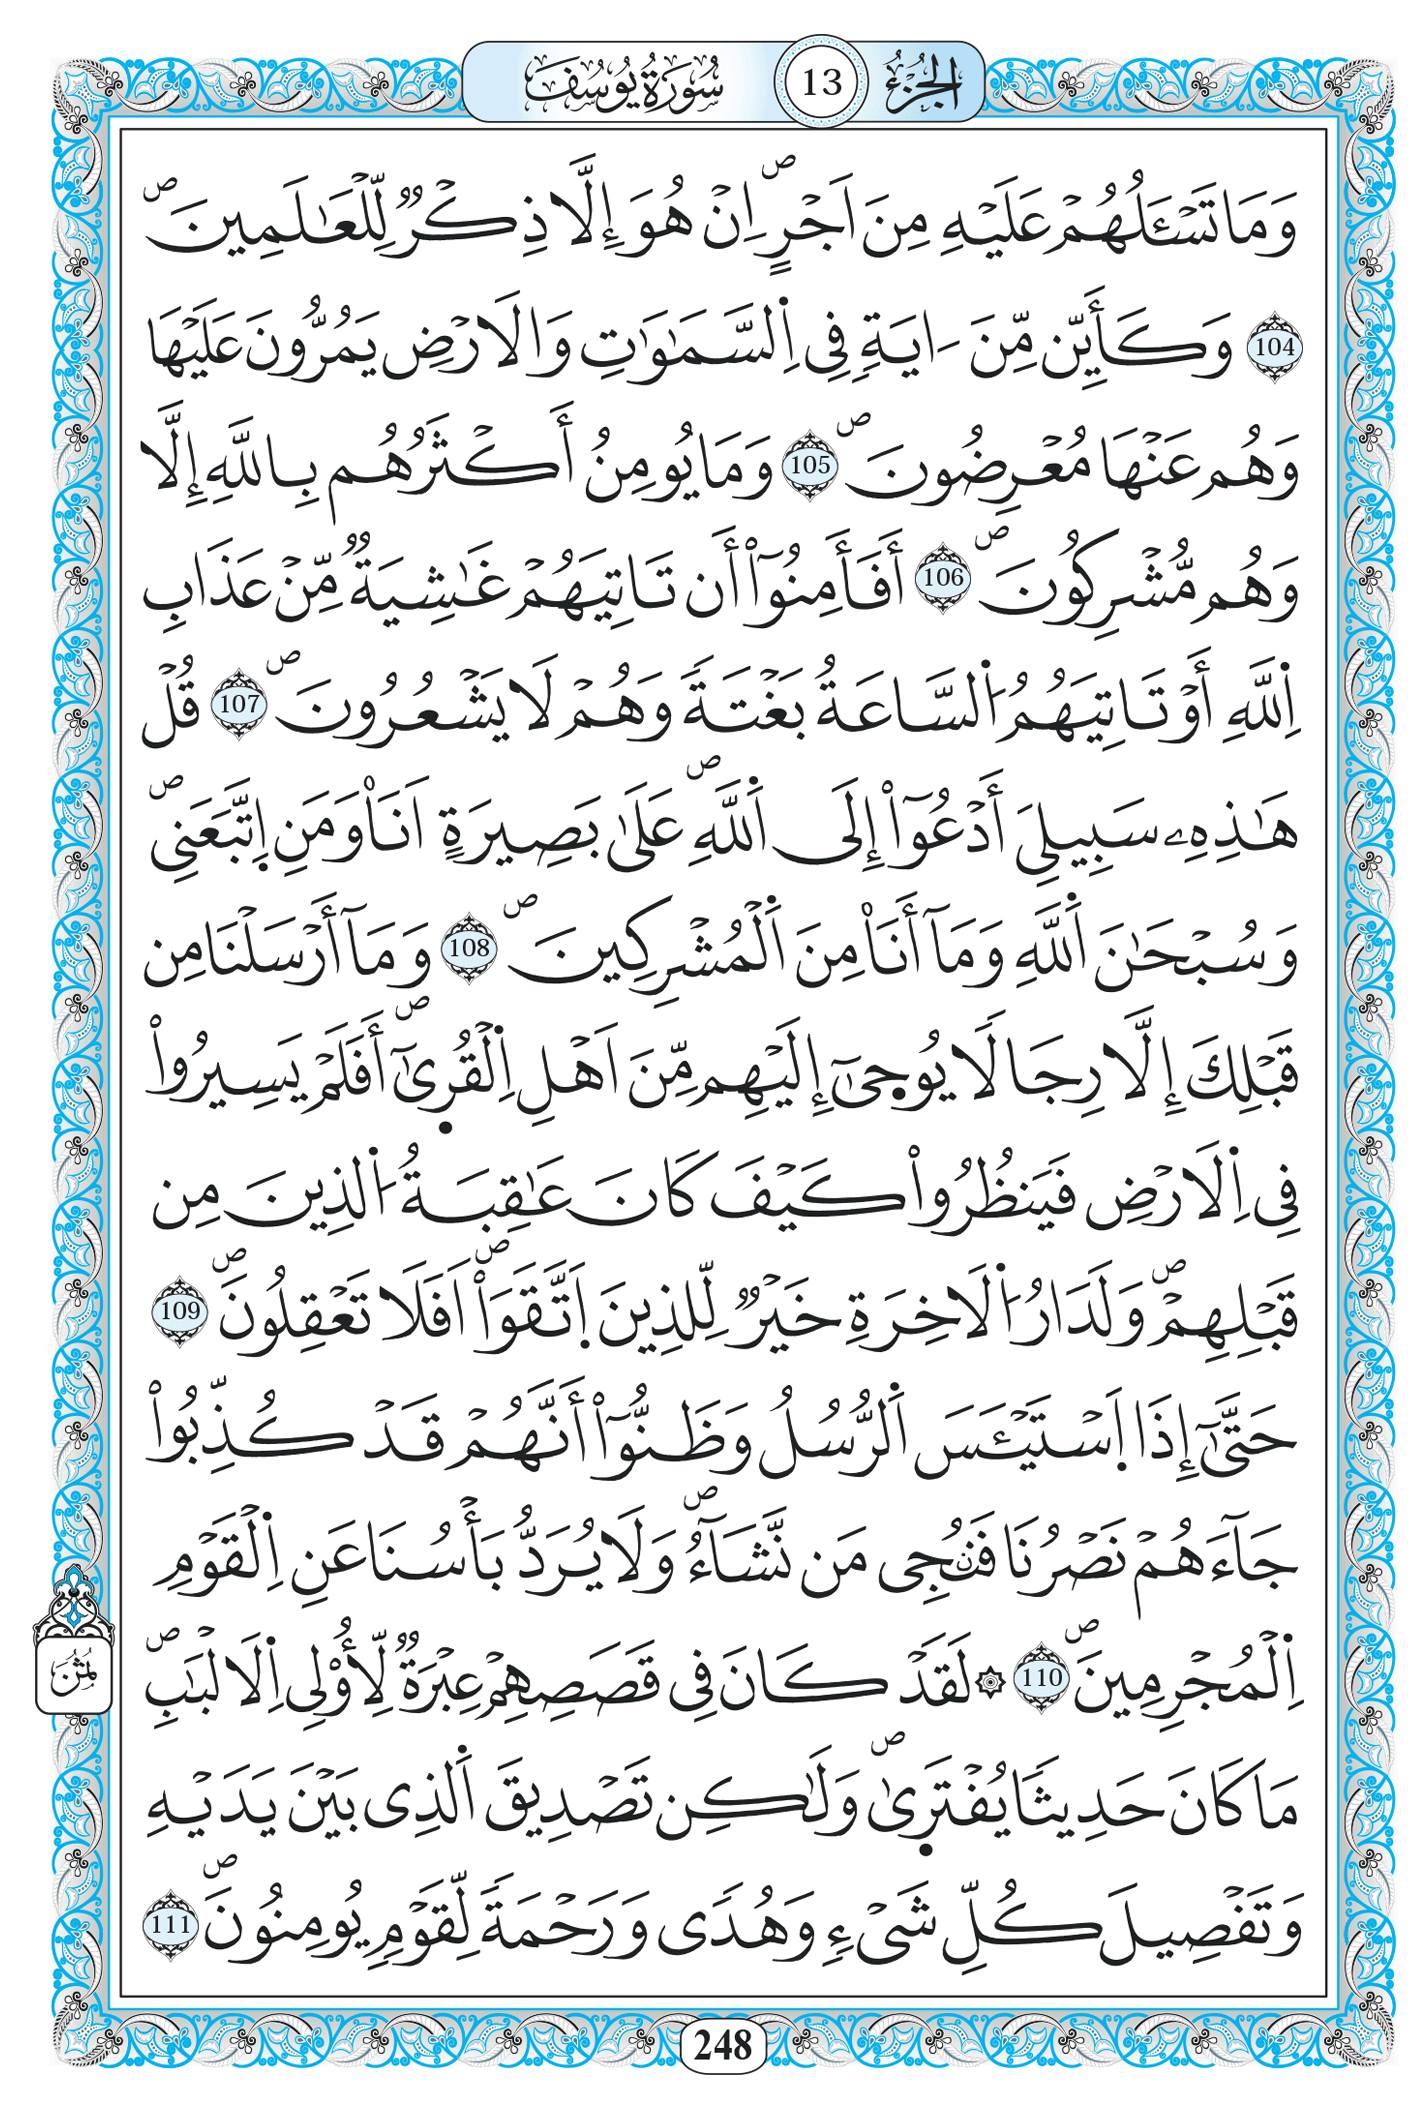 الجزء 13 سورة يوسف
وَمَا تَسْـَٔلُهُمْ عَلَيْهِ مِنَ اَجْرٍۖ اِنْ هُوَ إِلَّا ذِكْرٞ لِّلْعَٰلَمِينَۖ
104 وَكَأَيِّن مِّنَ ـايَةٖ فِي اِ۬لسَّمَٰوَٰتِ وَالَارْضِ يَمُرُّونَ عَلَيْهَا
وَهُمْ عَنْهَا مُعْرِضُونَۖ 105 وَمَا يُومِنُ أَكْثَرُهُم بِاللَّهِ إِلَّا
وَهُم مُّشْرِكُونَۖ 106 أَفَأَمِنُوٓاْ أَن تَاتِيَهُمْ غَٰشِيَةٞ مِّنْ عَذَابِ
اِ۬للَّهِ أَوْ تَاتِيَهُمُ اُ۬لسَّاعَةُ بَغْتَةٗ وَهُمْ لَا يَشْعُرُونَۖ 107 قُلْ
هَٰذِهِۦ سَبِيلِيَ أَدْعُوٓاْ إِلَى اَ۬للَّهِۖ عَلَىٰ بَصِيرَةٍ اَنَاْ وَمَنِ اِ۪تَّبَعَنِيۖ
وَسُبْحَٰنَ اَ۬للَّهِ وَمَآ أَنَاْ مِنَ اَ۬لْمُشْرِكِينَۖ 108 وَمَآ أَرْسَلْنَا مِن
قَبْلِكَ إِلَّا رِجَالٗا يُوح۪يٰٓ إِلَيْهِم مِّنَ اَهْلِ اِ۬لْقُر۪ىٰٓۖ أَفَلَمْ يَسِيرُواْ
فِي اِ۬لَارْضِ فَيَنظُرُواْ كَيْفَ كَانَ عَٰقِبَةُ اُ۬لذِينَ مِن
قَبْلِهِمْۖ وَلَدَارُ اُ۬لَاخِرَةِ خَيْرٞ لِّلذِينَ اَ۪تَّقَوَاْۖ اَفَلَا تَعْقِلُونَۖ 109
حَتَّىٰٓ إِذَا اَ۪سْتَيْـَٔسَ اَ۬لرُّسُلُ وَظَنُّوٓاْ أَنَّهُمْ قَدْ كُذِّبُواْ
جَآءَهُمْ نَصْرُنَا فَنُۨجِي مَن نَّشَآءُۖ وَلَا يُرَدُّ بَأْسُنَا عَنِ اِ۬لْقَوْمِ
اِ۬لْمُجْرِمِينَۖ 110 ۞ لَقَدْ كَانَ فِي قَصَصِهِمْ عِبْرَةٞ لِّأُوْلِي اِ۬لَالْبَٰبِۖ
مَا كَانَ حَدِيثاٗ يُفْتَر۪ىٰۖ وَلَٰكِن تَصْدِيقَ اَ۬لذِي بَيْنَ يَدَيْهِ
وَتَفْصِيلَ كُلِّ شَيْءٖ وَهُدٗى وَرَحْمَةٗ لِّقَوْمٖ يُومِنُونَۖ 111
ثمن
248